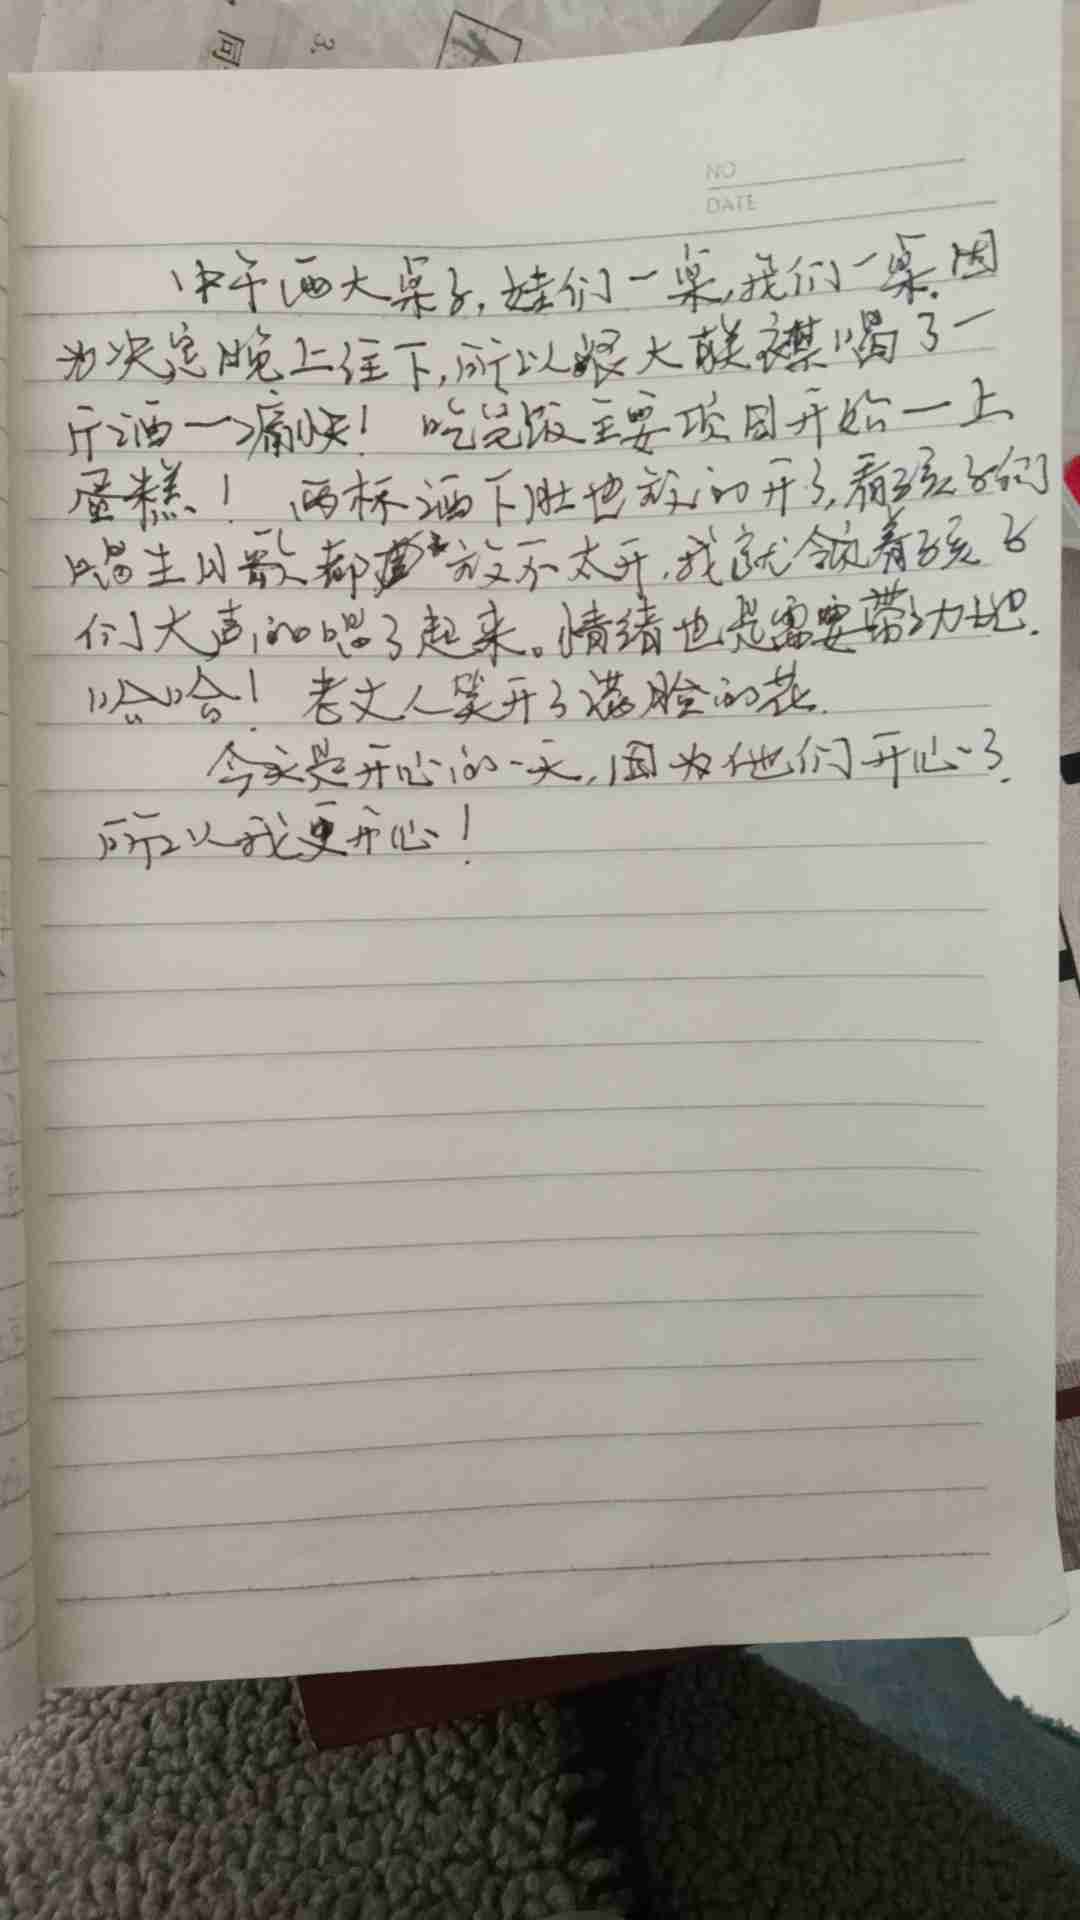 3.
同
NO
DATE
中午两大桌子,娃们一桌,我们一桌.因
为决定晚上住下,所以跟大联襟喝了一
斤酒一痛快! 吃完饭主要项目开始一上
蛋糕! 两杯酒下肚也放的开了,看孩子们
唱生日歌都放不太开,我就领着孩子
们大声的唱了起来。情绪也是需要带动地.
哈哈! 老丈人笑开了满脸的花.
今天是开心的一天,因为他们开心了.
所以我更开心!